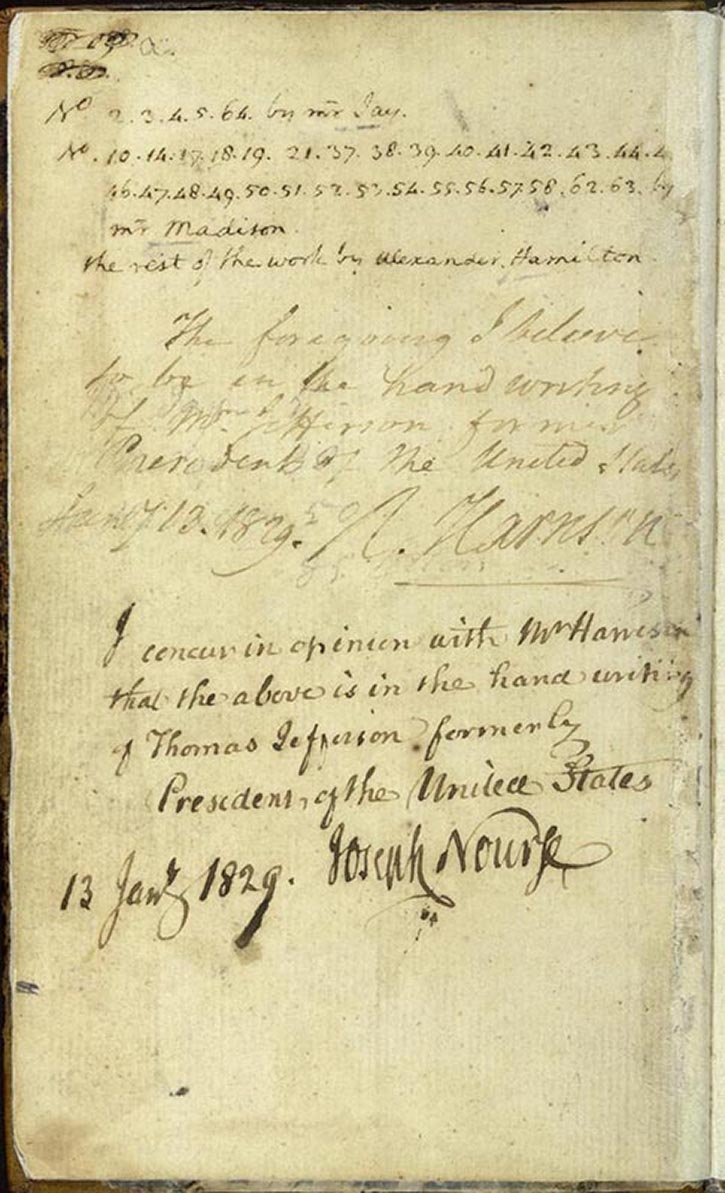 No 2. 3. 4. 5. 64. by mr Jay.
No. 10. 14. 17. 18. 19. 21. 37. 38. 39. 40. 41. 42. 43. 44. 4
46. 47. 48. 49. 50. 51. 52. 53. 54. 55. 56. 57. 58. 62. 63. by
mr Madison.
the rest of the work by Alexander Hamilton
The foregoing I believe
to be in the hand writing
of Mr Jefferson former
President of the United States
Jany 13. 1829. R. Harrison
I concur in opinion with Mr Harrison
that the above is in the hand writing
of Thomas Jefferson formerly
President of the United States
13 Jany 1829. Joseph Nourse